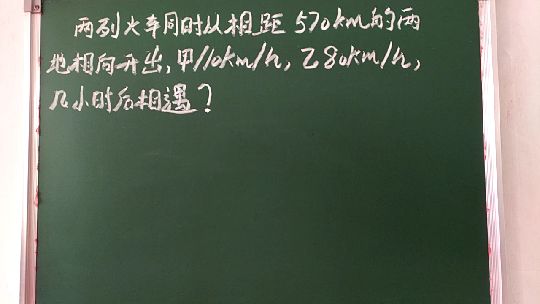 两列火车同时从相距570km的两
地相向开出,甲110km/h,乙80km/h,
几小时后相遇?